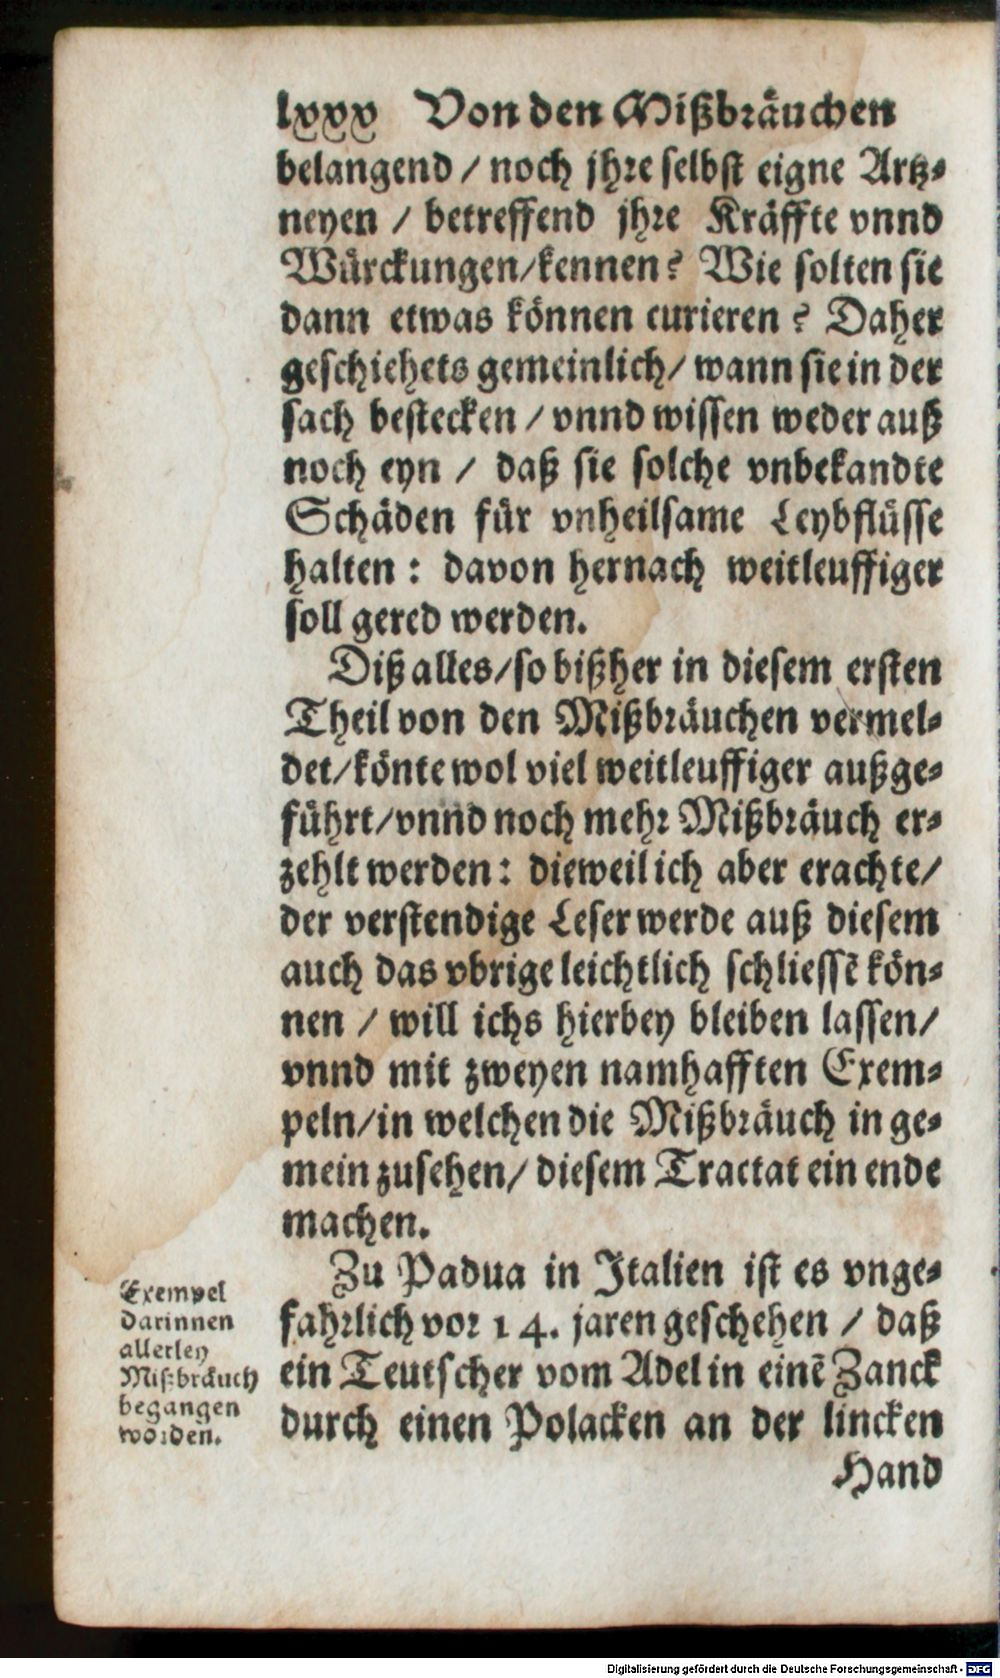 lxxx Von den Mißbräuchen
belangend / noch jhre selbst eigne Artz-
neyen / betreffend jhre Kräffte vnnd
Würckungen/kennen? Wie solten sie
dann etwas können curieren? Daher
geschiehets gemeinlich/ wann sie in der
sach bestecken / vnnd wissen weder auß
noch eyn / daß sie solche vnbekandte
Schäden für vnheilsame Leybflüsse
halten: davon hernach weitleuffiger
soll gered werden.
Diß alles/so bißher in diesem ersten
Theil von den Mißbräuchen vermel-
det/könte wol viel weitleuffiger außge-
führt/vnnd noch mehr Mißbräuch er-
zehlt werden: dieweil ich aber erachte/
der verstendige Leser werde auß diesem
auch das vbrige leichtlich schliessē kön-
nen / will ichs hierbey bleiben lassen/
vnnd mit zweyen namhafften Exem-
peln/in welchen die Mißbräuch in ge-
mein zusehen/ diesem Tractat ein ende
machen.
Zu Padua in Italien ist es vnge-
fahrlich vor 14. jaren geschehen / daß
ein Teutscher vom Adel in einē Zanck
durch einen Polacken an der lincken
Hand
Exempel
darinnen
allerley
Mißbräuch
begangen
worden.
Digitalisierung gefördert durch die Deutsche Forschungsgemeinschaft - DFG